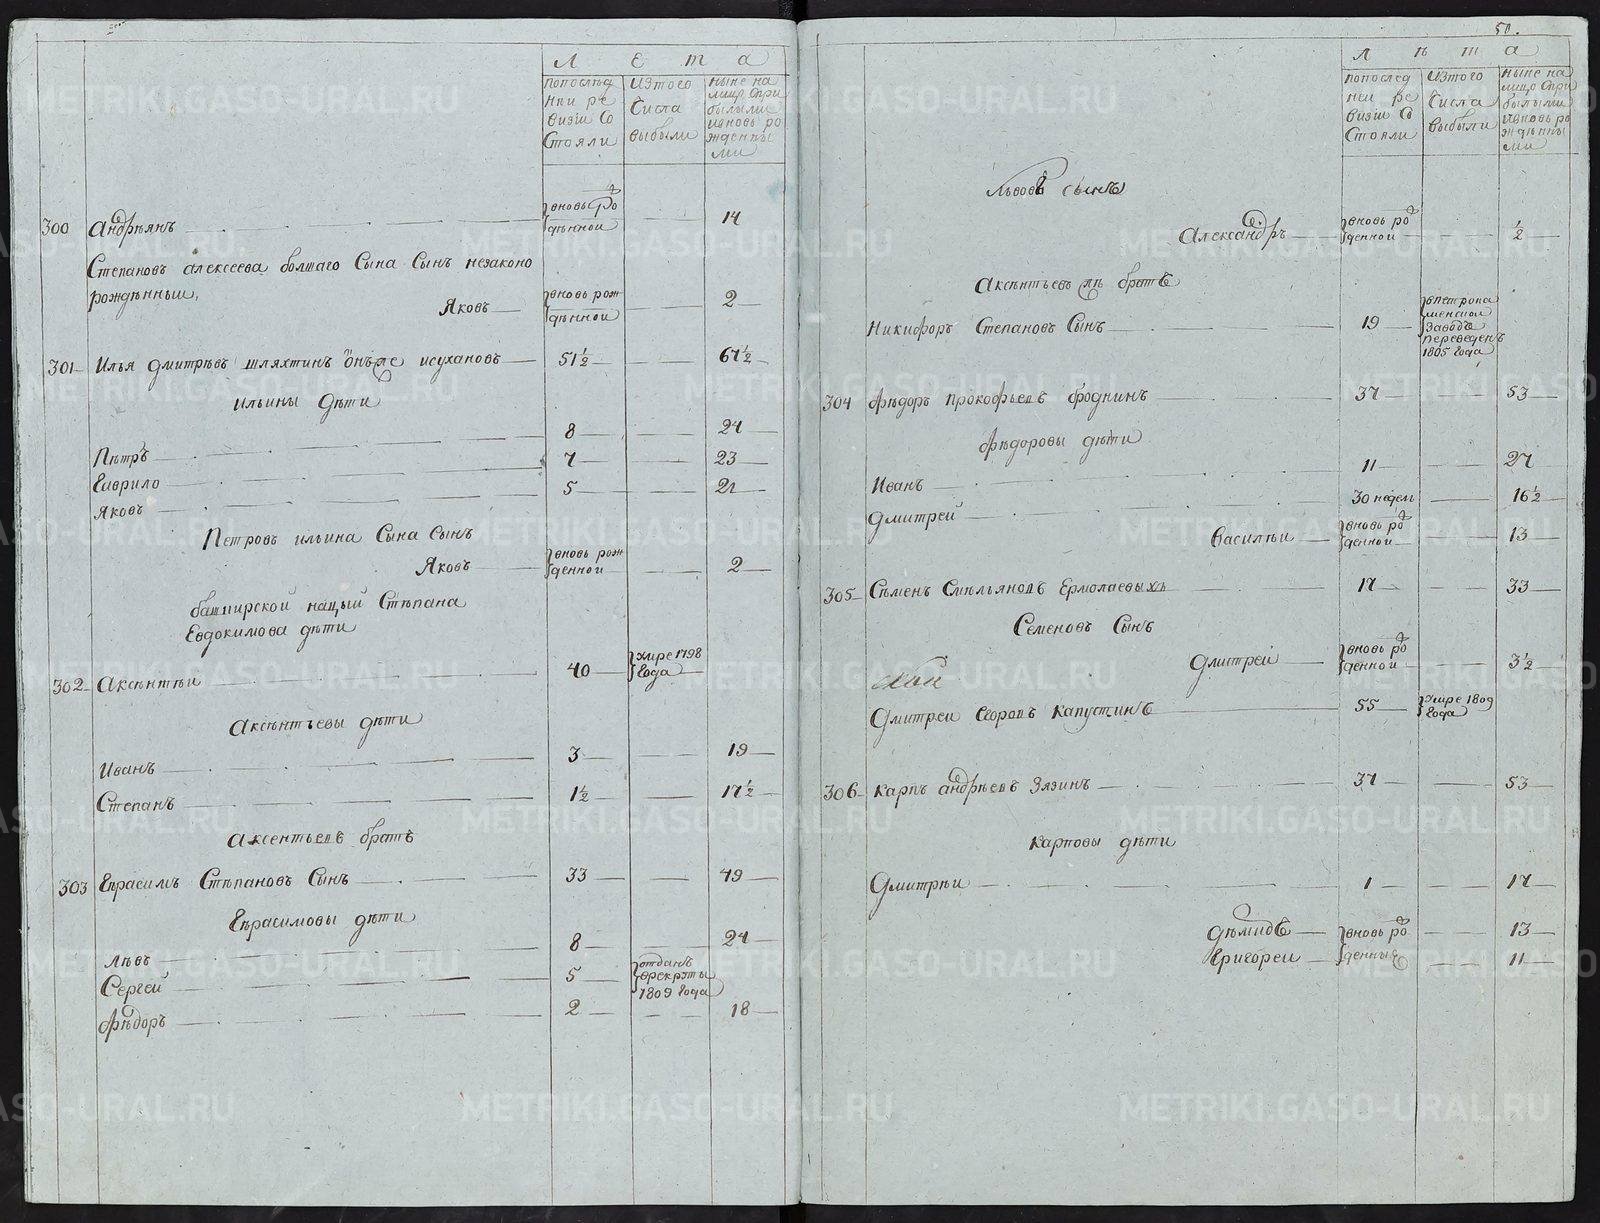 Л Е Т А
попослѣд
нѣи ре
визіи со
стояли
изтого
числа
выбыли
ныне на
лицо спри
былыми
ивновь ро
жденны
ми
300 Андрѣянъ вновь ро
жденной 14
Степановъ алексеева болшаго Сына Сынъ незаконо
рожденныи,
Яковъ вновь рож
денной 2
301 Илья дмитрѣвъ шляхтинъ исухановъ 51½ 67½
ильины дѣти
Пѣтръ 8 24
Гаврило 7 23
Яковъ 5 21
Петровъ ильина Сына Сынъ
Яковъ вновь рож
денной 2
башкирской нацыи Степана
Евдокимова дѣти
302 Аксѣнтѣи 40 умре 1798
года
Аксѣнтьевы дѣти
Иванъ 3 19
Степанъ 1½ 17½
Аксентьевъ братъ
303 Герасимъ Степановъ Сынъ 33 49
Герасимовы дѣти
Лѣвъ 8 24
Сергей 5 отданъ
врекруты
1809 года
Фѣдоръ 2 18
50.
Л ѣ т а
попослед
неи ре
визіи со
стояли
изтого
числа
выбыли
ныне на
лицо спри
былыми
ивновь ро
жденны
ми
Львовъ сынъ
Александръ вновь ро
жденной ½
Аксѣнтьевъ же братъ
Никифоръ Степановъ Сынъ 19 впетрока
менской
заводъ
переведенъ
1805 года
304 Фѣдоръ прокофьевъ бродкинъ 37 53
Фѣдоровы дѣти
Иванъ 11 27
Дмитрей 30 недел 16½
Василѣи вновь ро
жденной 13
305 Семенъ Емѣльяновъ Ермолаевыхъ 17 33
Семеновъ Сынъ
Дмитрей вновь ро
жденной 3½
Дмитреи Егоровъ Капустинъ 55 умре 1809
года
306 Карпъ андрѣевъ Зязинъ 37 53
Карповы дѣти
Дмитрѣи 1 17
Дѣмидъ вновь ро
жденные 13
Григореи 11
METRIKI.GASO-URAL.RU